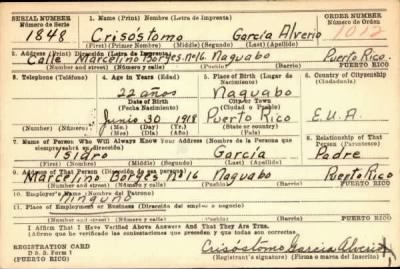 SERIAL NUMBER 1. Name (Print) Nombre (Letra de Imprenta) ORDER NUMBER
Número de Serie Número de Orden
1848 Crisóstomo García Alverio 1012
(First) (Primer Nombre) (Middle) (Segundo) (Last) (Apellido)
2. Address (Print) Dirección (Letra de Imprenta)
Calle Marcelino Borges Nº16 Naguabo Puerto Rico.
(Number and street) (Número y calle) (Town) (Pueblo) PUERTO RICO
3. Telephone (Teléfono) 4. Age in Years (Edad) 5. Place of Birth (Lugar de Nacimiento) 6. Country of Citizenship (Ciudadanía)
22 años Naguabo
Date of Birth City or Town
Fecha de Nacimiento (Ciudad o Pueblo)
Junio 30 1918 Puerto Rico E.U.A.
(Number) (Número) (Mo.) (Day) (Yr.) (State or country)
(Mes) (Día) (Año) (Estado o país)
7. Name of Person Who Will Always Know Your Address (Nombre de la Persona que siempre sabrá su dirección) 8. Relationship of That Person (Parentesco)
Isidro García Padre
(First) (Primer Nombre) (Middle) (Segundo) (Last) (Apellido)
9. Address of That Person (Dirección de esa persona)
Marcelino Borges Nº16 Naguabo Puerto Rico
(Number and street) (Número y calle) (Town) (Pueblo) PUERTO RICO
10. Employer's Name (Nombre del Patrono)
Ninguno
11. Place of Employment or Business (Dirección del empleo o negocio)
(Number and street) (Número y calle) (Town) (Pueblo) PUERTO RICO
I Affirm That I Have Verified Above Answers And That They Are True.
Afirmo que he verificado las contestaciones que preceden y que todas son correctas.
REGISTRATION CARD
D. S. S. Form 1
(PUERTO RICO)
Crisóstomo García Alverio
(Registrant's signature) (Firma o marca del Inscrito)